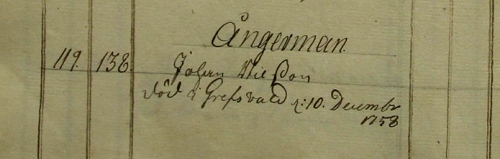 Ångerman
119 138. Johan Nilsson
död i Grefswald d: 10. Decembr
1758